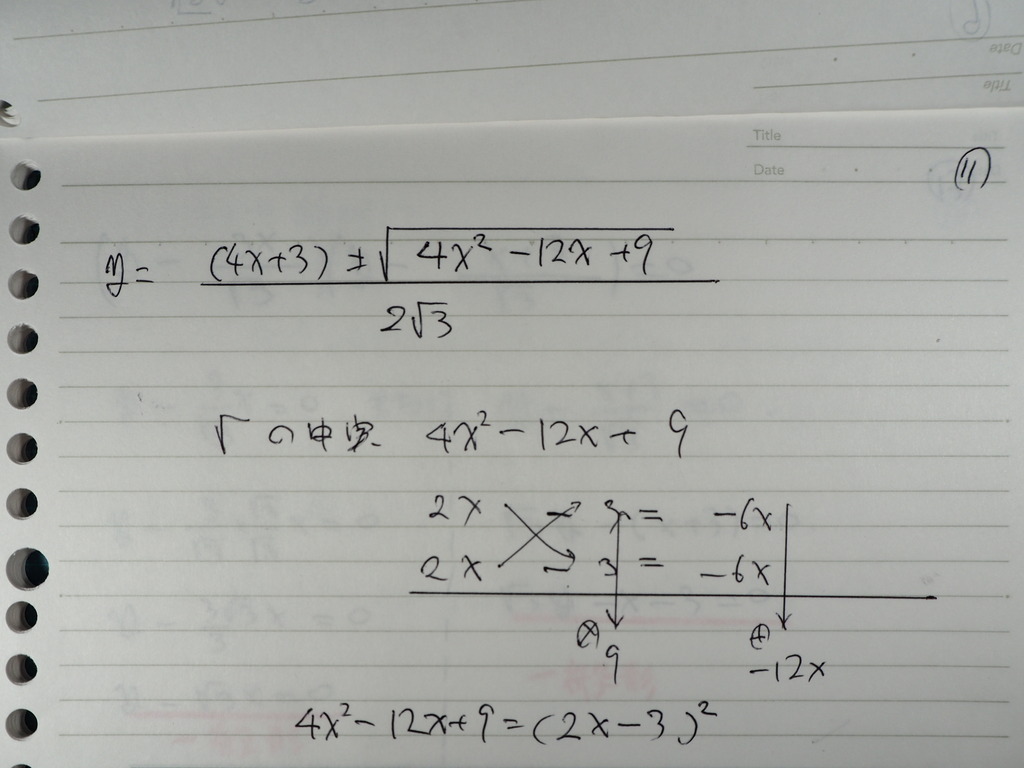 Title
Date
⑪
y = (4x+3) ± √(4x² − 12x + 9) / 2√3
√ の中実 4x² − 12x + 9
2x − 3 = −6x
2x − 3 = −6x
⊗ 9 ⊕ −12x
4x² − 12x + 9 = (2x − 3)²